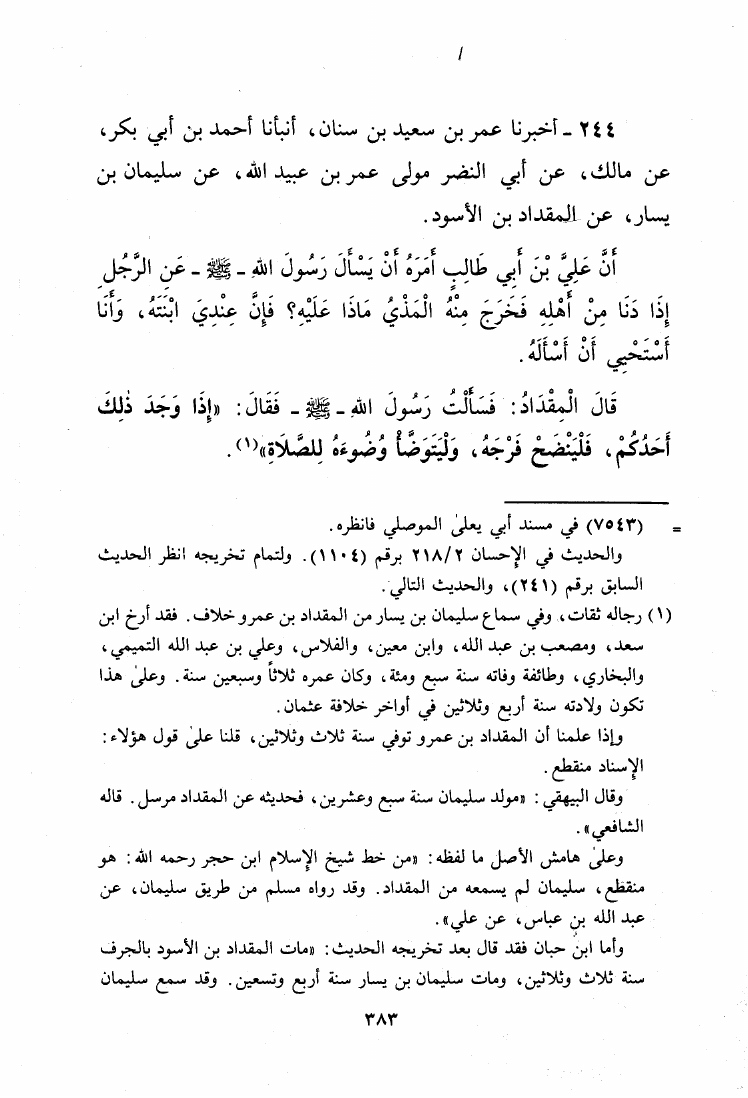 /
٢٤٤ - أخبرنا عمر بن سعيد بن سنان، أنبأنا أحمد بن أبي بكر،
عن مالك، عن أبي النضر مولى عمر بن عبيد الله، عن سليمان بن
يسار، عن المقداد بن الأسود.
أَنَّ عَلِيَّ بْنَ أَبِي طَالِبٍ أَمَرَهُ أَنْ يَسْأَلَ رَسُولَ اللهِ - ﷺ - عَنِ الرَّجُلِ
إِذَا دَنَا مِنْ أَهْلِهِ فَخَرَجَ مِنْهُ الْمَذْيُ مَاذَا عَلَيْهِ؟ فَإِنَّ عِنْدِيَ ابْنَتَهُ، وَأَنَا
أَسْتَحْيِي أَنْ أَسْأَلَهُ.
قَالَ الْمِقْدَادُ: فَسَأَلْتُ رَسُولَ اللهِ - ﷺ - فَقَالَ: «إِذَا وَجَدَ ذٰلِكَ
أَحَدُكُمْ، فَلْيَنْضَحْ فَرْجَهُ، وَلْيَتَوَضَّأْ وُضُوءَهُ لِلصَّلَاةِ»(١).
= (٧٥٤٣) في مسند أبي يعلىٰ الموصلي فانظره.
والحديث في الإحسان ٢١٨/٢ برقم (١١٠٤). ولتمام تخريجه انظر الحديث
السابق برقم (٢٤١)، والحديث التالي.
(١) رجاله ثقات، وفي سماع سليمان بن يسار من المقداد بن عمرو خلاف. فقد أرخ ابن
سعد، ومصعب بن عبد الله، وابن معين، والفلاس، وعلي بن عبد الله التميمي،
والبخاري، وطائفة وفاته سنة سبع ومئة، وكان عمره ثلاثاً وسبعين سنة. وعلىٰ هذا
تكون ولادته سنة أربع وثلاثين في أواخر خلافة عثمان.
وإذا علمنا أن المقداد بن عمرو توفي سنة ثلاث وثلاثين، قلنا علىٰ قول هؤلاء:
الإسناد منقطع.
وقال البيهقي: «مولد سليمان سنة سبع وعشرين، فحديثه عن المقداد مرسل. قاله
الشافعي».
وعلىٰ هامش الأصل ما لفظه: «من خط شيخ الإسلام ابن حجر رحمه الله: هو
منقطع، سليمان لم يسمعه من المقداد. وقد رواه مسلم من طريق سليمان، عن
عبد الله بن عباس، عن علي».
وأما ابن حبان فقد قال بعد تخريجه الحديث: «مات المقداد بن الأسود بالجرف
سنة ثلاث وثلاثين، ومات سليمان بن يسار سنة أربع وتسعين. وقد سمع سليمان
٣٨٣